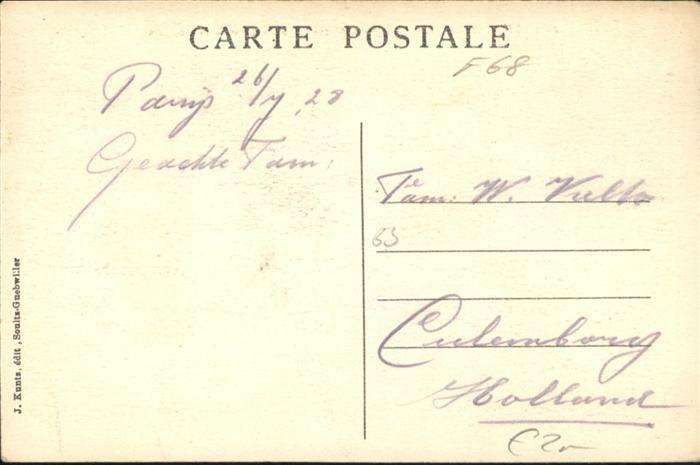 CARTE POSTALE
F68
Parijs 26/7, 28
Geachte Fam:
Fam: W. Vulto
63
Culemborg
Holland
J. Kuntz, édit, Soultz-Guebwiller